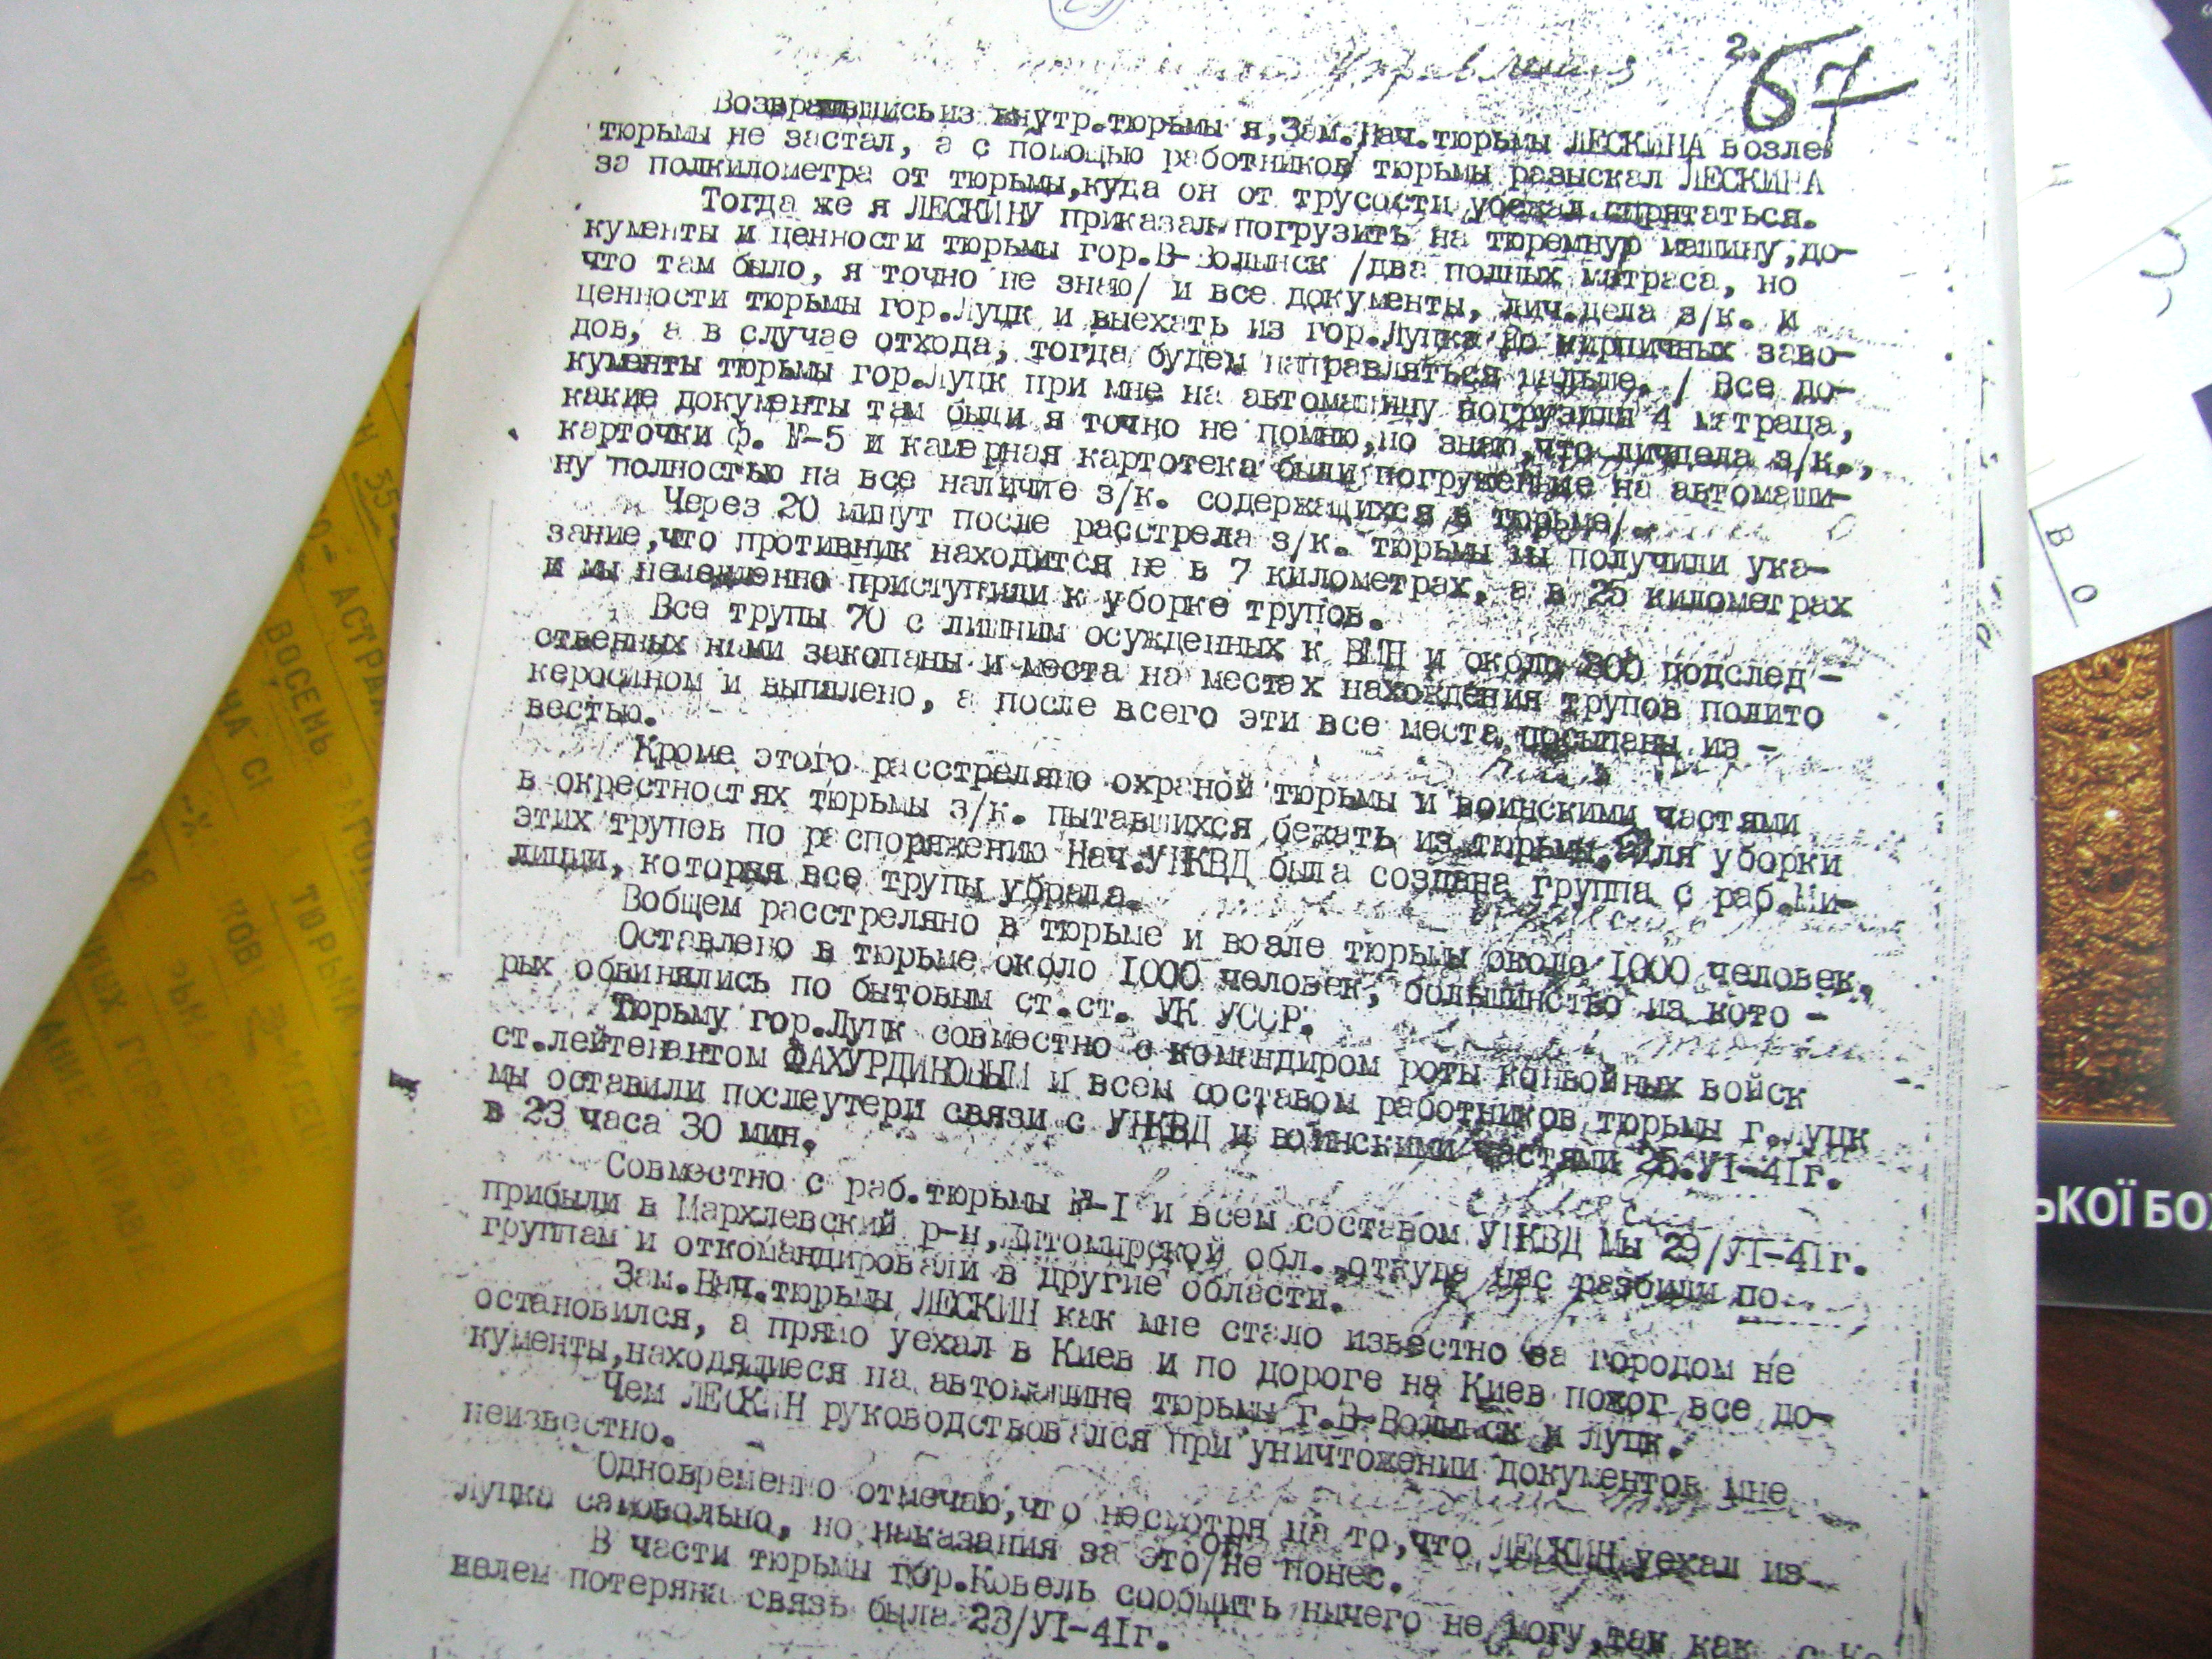 2.
67
Возвратившись из внутр.тюрьмы я, Зам.Нач.тюрьмы ЛЕСКИНА возле
тюрьмы не застал, а с помощью работников тюрьмы разыскал ЛЕСКИНА
за полкилометра от тюрьмы,куда он от трусости убежал спрятаться.
Тогда же я ЛЕСКИНУ приказал погрузить на тюремную машину,до-
кументы и ценности тюрьмы гор.В-Волынск /два полных матраса, но
что там было, я точно не знаю/ и все документы, лич.дела з/к. и
ценности тюрьмы гор.Луцк и выехать из гор.Луцка до кирпичных заво-
дов, а в случае отхода, тогда будем направляться дальше. / Все до-
кументы тюрьмы гор.Луцк при мне на автомашину погрузили 4 матраца,
какие документы там были я точно не помню,но знаю,что личдела з/к.,
карточки ф. №-5 и камерная картотека были погружены на автомаши-
ну полностью на все наличие з/к. содержащихся в тюрьме/.
Через 20 минут после расстрела з/к. тюрьмы мы получили ука-
зание,что противник находится не в 7 километрах, а в 25 километрах
и мы немедленно приступили к уборке трупов.
Все трупы 70 с лишним осужденных к ВМН и около 800 подслед -
ственных нами закопаны и места на местах нахождения трупов полито
керосином и выпалено, а после всего эти все места посыпаны из -
вестью.
Кроме этого расстреляно охраной тюрьмы и воинскими частями
в окрестностях тюрьмы з/к. пытавшихся бежать из тюрьмы. Для уборки
этих трупов по распоряжению Нач.УНКВД была создана группа с раб.Ми-
лиции, которая все трупы убрала.
Вобщем расстреляно в тюрьме и возле тюрьмы около 1000 человек.
Оставлено в тюрьме около 1000 человек, большинство из кото -
рых обвинялись по бытовым ст.ст. УК УССР.
Тюрьму гор.Луцк совместно с командиром роты конвойных войск
ст.лейтенантом ФАХУРДИНОВЫМ и всем составом работников тюрьмы г.Луцк
мы оставили послеутери связи с УНКВД и воинскими частями 25.УІ-41г.
в 23 часа 30 мин.
Совместно с раб.тюрьмы №-I и всем составом УНКВД мы 29/УІ-41г.
прибыли в Мархлевский р-н,Житомирской обл. откуда нас разбили по
группам и откомандировали в другие области.
Зам.Нач.тюрьмы ЛЕСКИН как мне стало известно за городом не
остановился, а прямо уехал в Киев и по дороге на Киев пожог все до-
кументы,находящиеся на автомашине тюрьмы г.В-Волынск и Луцк.
Чем ЛЕСКИН руководствовался при уничтожении документов мне
неизвестно.
Одновременно отмечаю,что несмотря на то,что ЛЕСКИН уехал из
Луцка самовольно, но наказания за это/он не понес.
В части тюрьмы гор.Ковель сообщить ничего не могу,так как с Ко
велем потеряна связь была 23/УІ-41г.
В О
ЬКОЇ БО
35-
АСТРА
ВОСЕМЬ
ТЮРЬМА